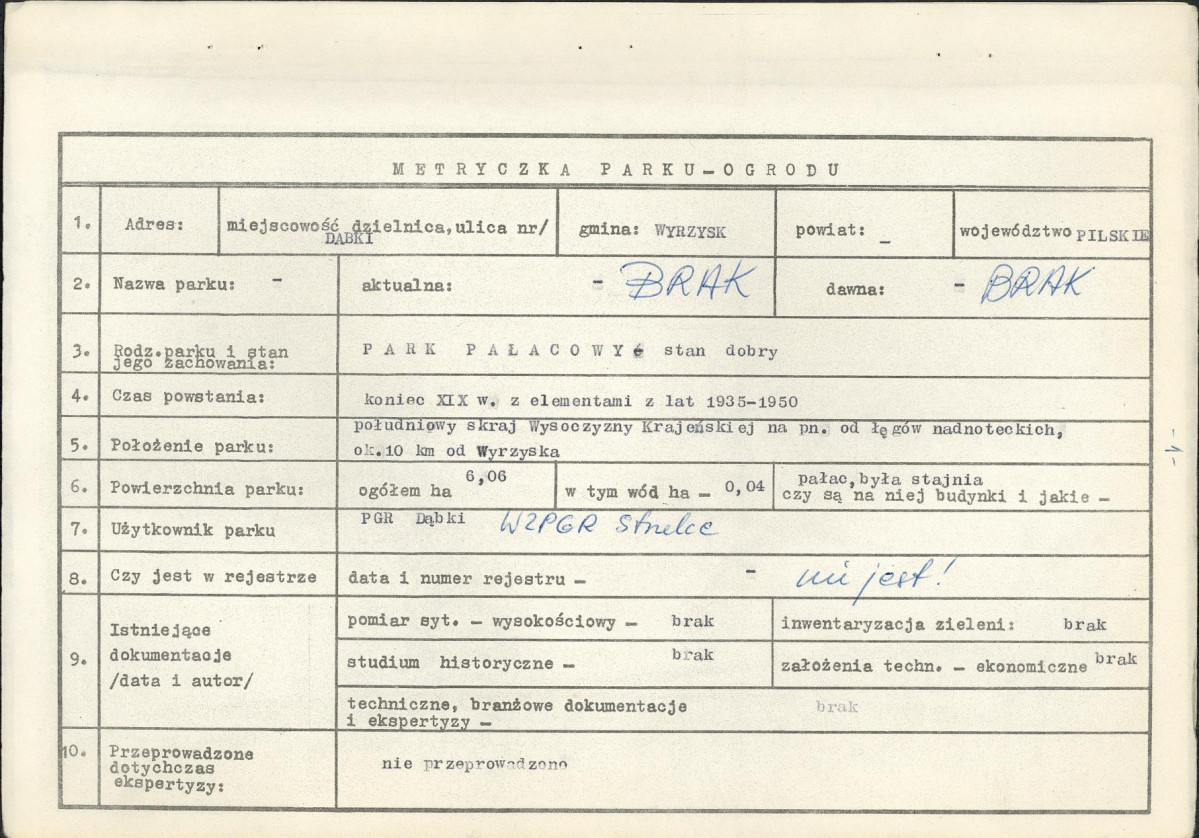 METRYCZKA PARKU-OGRODU
1. Adres: miejscowość dzielnica, ulica nr/ DĄBKI gmina: WYRZYSK powiat: - województwo PILSKIE
2. Nazwa parku: - aktualna: - BRAK dawna: - BRAK
3. Rodz. parku i stan jego zachowania: PARK PAŁACOWY stan dobry
4. Czas powstania: koniec XIX w. z elementami z lat 1935-1950
5. Położenie parku: południowy skraj Wysoczyzny Krajeńskiej na pn. od łęgów nadnoteckich,
ok.10 km od Wyrzyska
6. Powierzchnia parku: ogółem ha 6,06 w tym wód ha - 0,04 pałac, była stajnia
czy są na niej budynki i jakie -
7. Użytkownik parku PGR Dąbki WZPGR Strzelce
8. Czy jest w rejestrze data i numer rejestru - - nie jest!
9. Istniejące dokumentacje /data i autor/
pomiar syt. - wysokościowy - brak inwentaryzacja zieleni: brak
studium historyczne - brak założenia techn. - ekonomiczne brak
techniczne, branżowe dokumentacje brak
i ekspertyzy -
10. Przeprowadzone dotychczas ekspertyzy: nie przeprowadzono
-1-